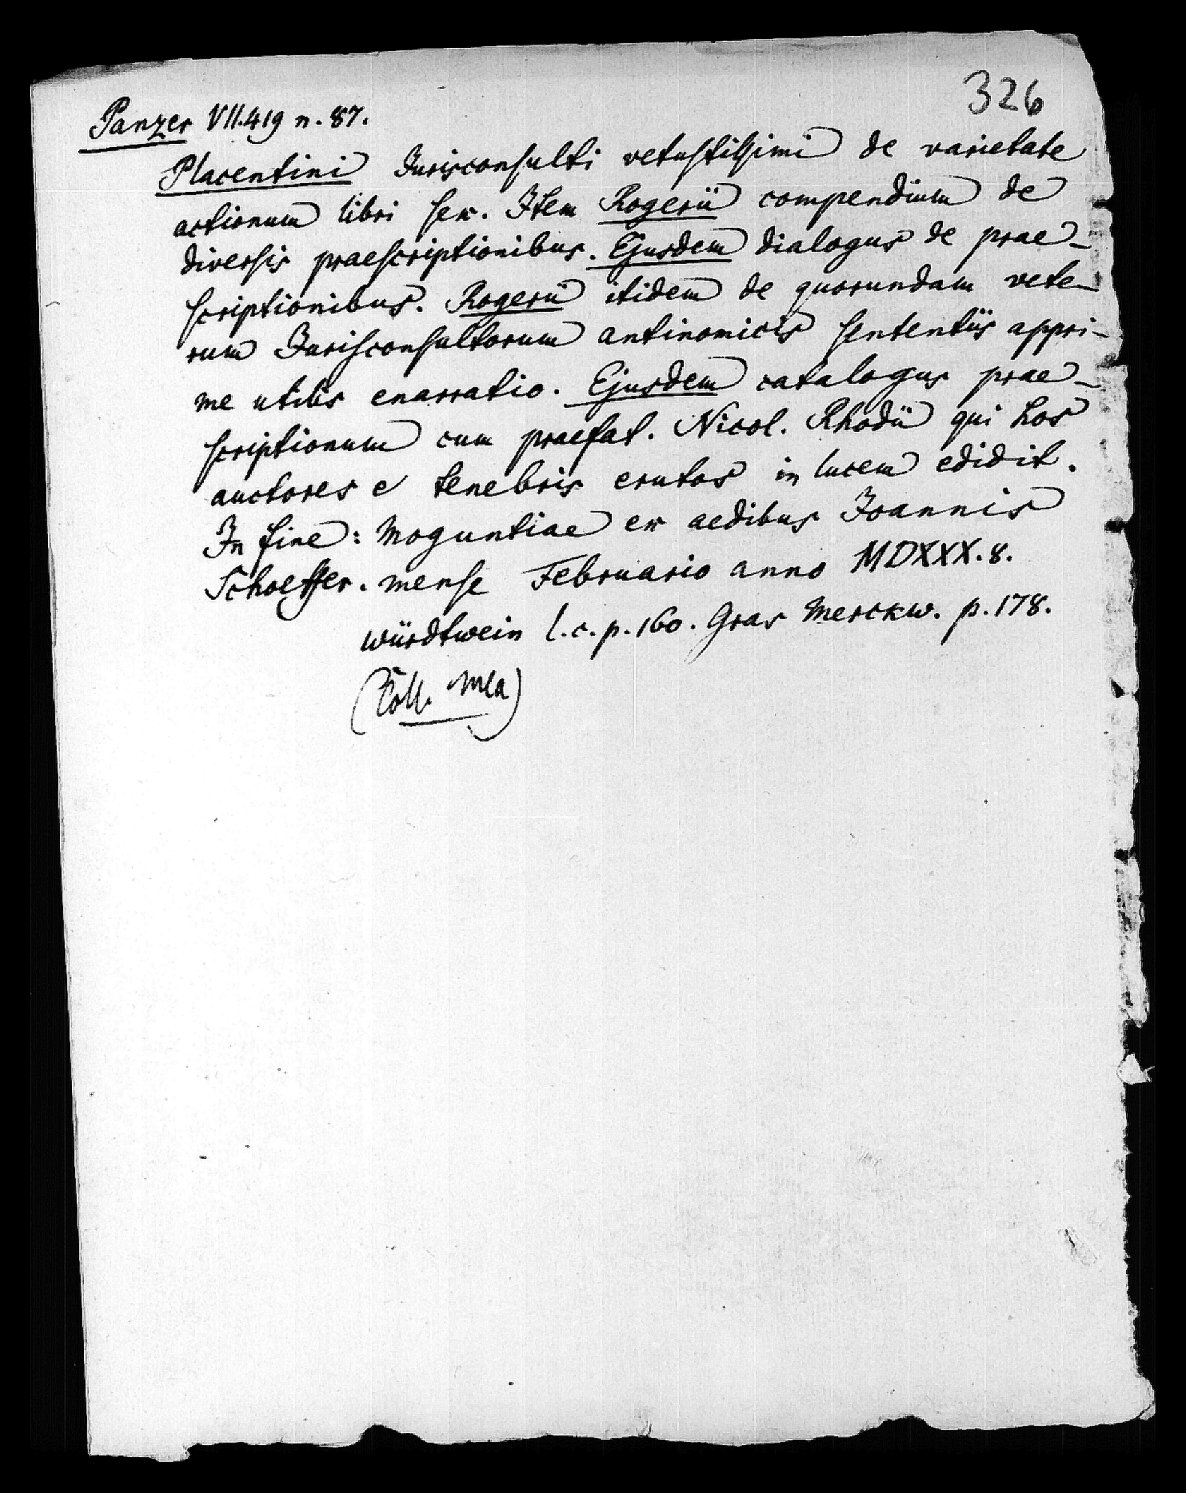 326
Panzer VII.419 n. 87.
Placentini Jurisconsulti vetustissimi de varietate
actionum libri sex. Item Rogerii compendium de
diversis praescriptionibus. Ejusdem dialogus de prae-
scriptionibus. Rogerii itidem de quorundam vete-
rum Jurisconsultorum antinomicis sententiis appri-
me utilis enarratio. Ejusdem catalogus prae-
scriptionum cum praefat. Nicol. Rhodii qui hos
auctores e tenebris erutos in lucem edidit.
In fine: Moguntiae ex aedibus Joannis
Schoeffer. mense Februario anno MDXXX. 8.
Würdtwein l. c. p. 160. Gras Merckw. p. 178.
(Coll. Mea)